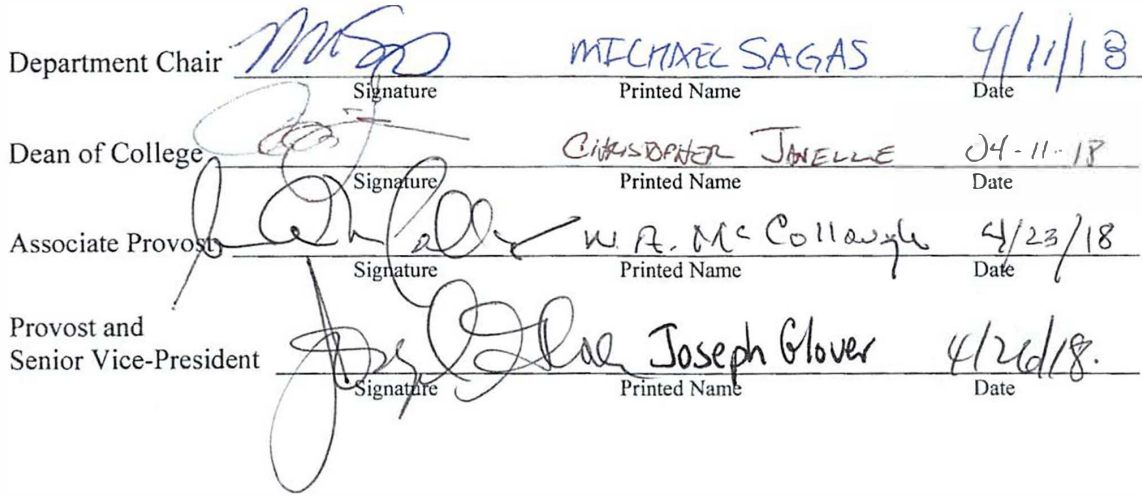 Department Chair MICHAEL SAGAS 4/11/18
Signature Printed Name Date
Dean of College CHRISTOPHER JANELLE 04-11-18
Signature Printed Name Date
Associate Provost W. A. McCollough 4/23/18
Signature Printed Name Date
Provost and
Senior Vice-President Joseph Glover 4/26/18.
Signature Printed Name Date